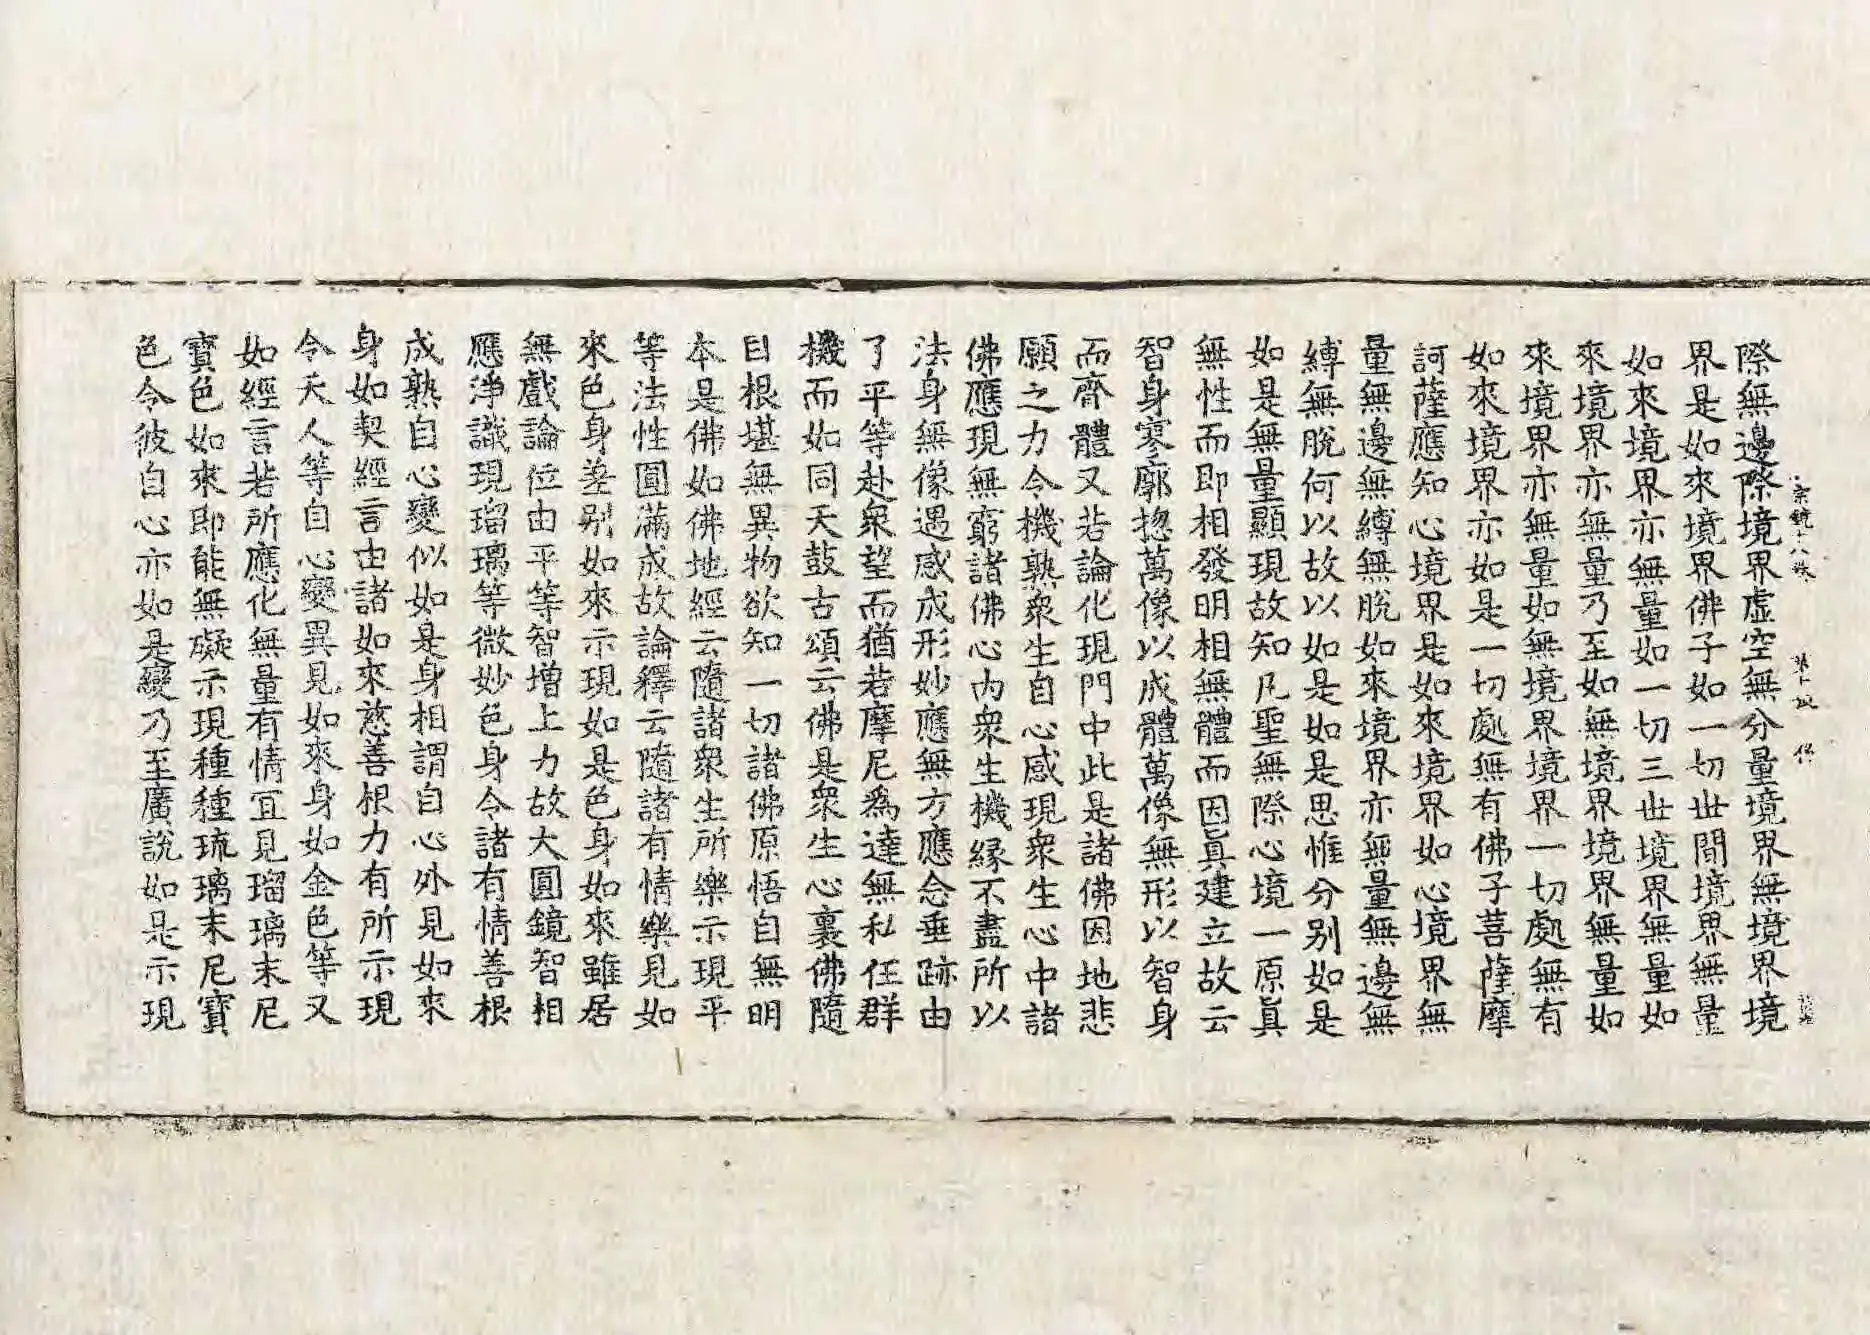 宗鏡十八
際無邊際境界虛空無分量境界無境界境
界是如來境界佛子如一切世間境界無量
如來境界亦無量如一切三世境界無量如
來境界亦無量乃至如無境界境界無量如
來境界亦無量如無境界境界一切處無有
如來境界亦如是一切處無有佛子菩薩摩
訶薩應知心境界是如來境界如心境界無
量無邊無縛無脫如來境界亦無量無邊無
縛無脫何以故以如是如是思惟分別如是
如是無量顯現故知凡聖無際心境一原眞
無性而即相發明相無體而因眞建立故云
智身寥廓揔萬像以成體萬像無形以智身
而齊體又若論化現門中此是諸佛因地悲
願之力令機熟衆生自心感現衆生心中諸
佛應現無窮諸佛心內衆生機緣不盡所以
法身無像遇感成形妙應無方應念垂跡由
了平等赴衆望而猶若摩尼爲達無私任群
機而如同天鼓古頌云佛是衆生心裏佛隨
自根堪無異物欲知一切諸佛原悟自無明
本是佛如佛地經云隨諸衆生所樂示現平
等法性圓滿成故論釋云隨諸有情樂見如
來色身差别如來示現如是色身如來雖居
無戲論位由平等智增上力故大圓鏡智相
應淨識現瑠璃等微妙色身令諸有情善根
成熟自心變似如是身相謂自心外見如來
身如契經言由諸如來慈善根力有所示現
令天人等自心變異見如來身如金色等又
如經言若所應化無量有情冝見瑠璃末尼
寶色如來即能無礙示現種種琉璃末尼寶
色令彼自心亦如是變乃至廣說如是示現